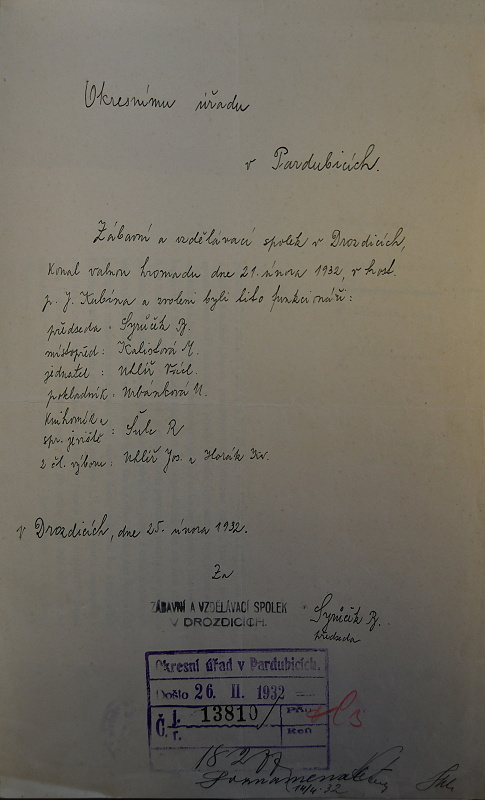 Okresnímu úřadu
v Pardubicích.
Zábavní a vzdělávací spolek v Drozdicích,
konal valnou hromadu dne 21. února 1932, v host.
p. J. Kubína a zvoleni byli tito funkcionáři:
předseda: Syrůček B.
místopřed: Kalistová M.
jednatel: Uhlíř Václ.
pokladník: Urbánková M.
Knihovník a
spr. jeviště: Šulc R
2 čl. výboru: Uhlíř Jos. a Horák Fr.
V Drozdicích, dne 25. února 1932.
Za
ZÁBAVNÍ A VZDĚLÁVACÍ SPOLEK
V DROZDICÍCH.
Syrůček B.
předseda
Okresní úřad v Pardubicích.
Došlo 26. II. 1932
Č. j. 13810/ Příl.
r. Keň
18-2
14/4 32